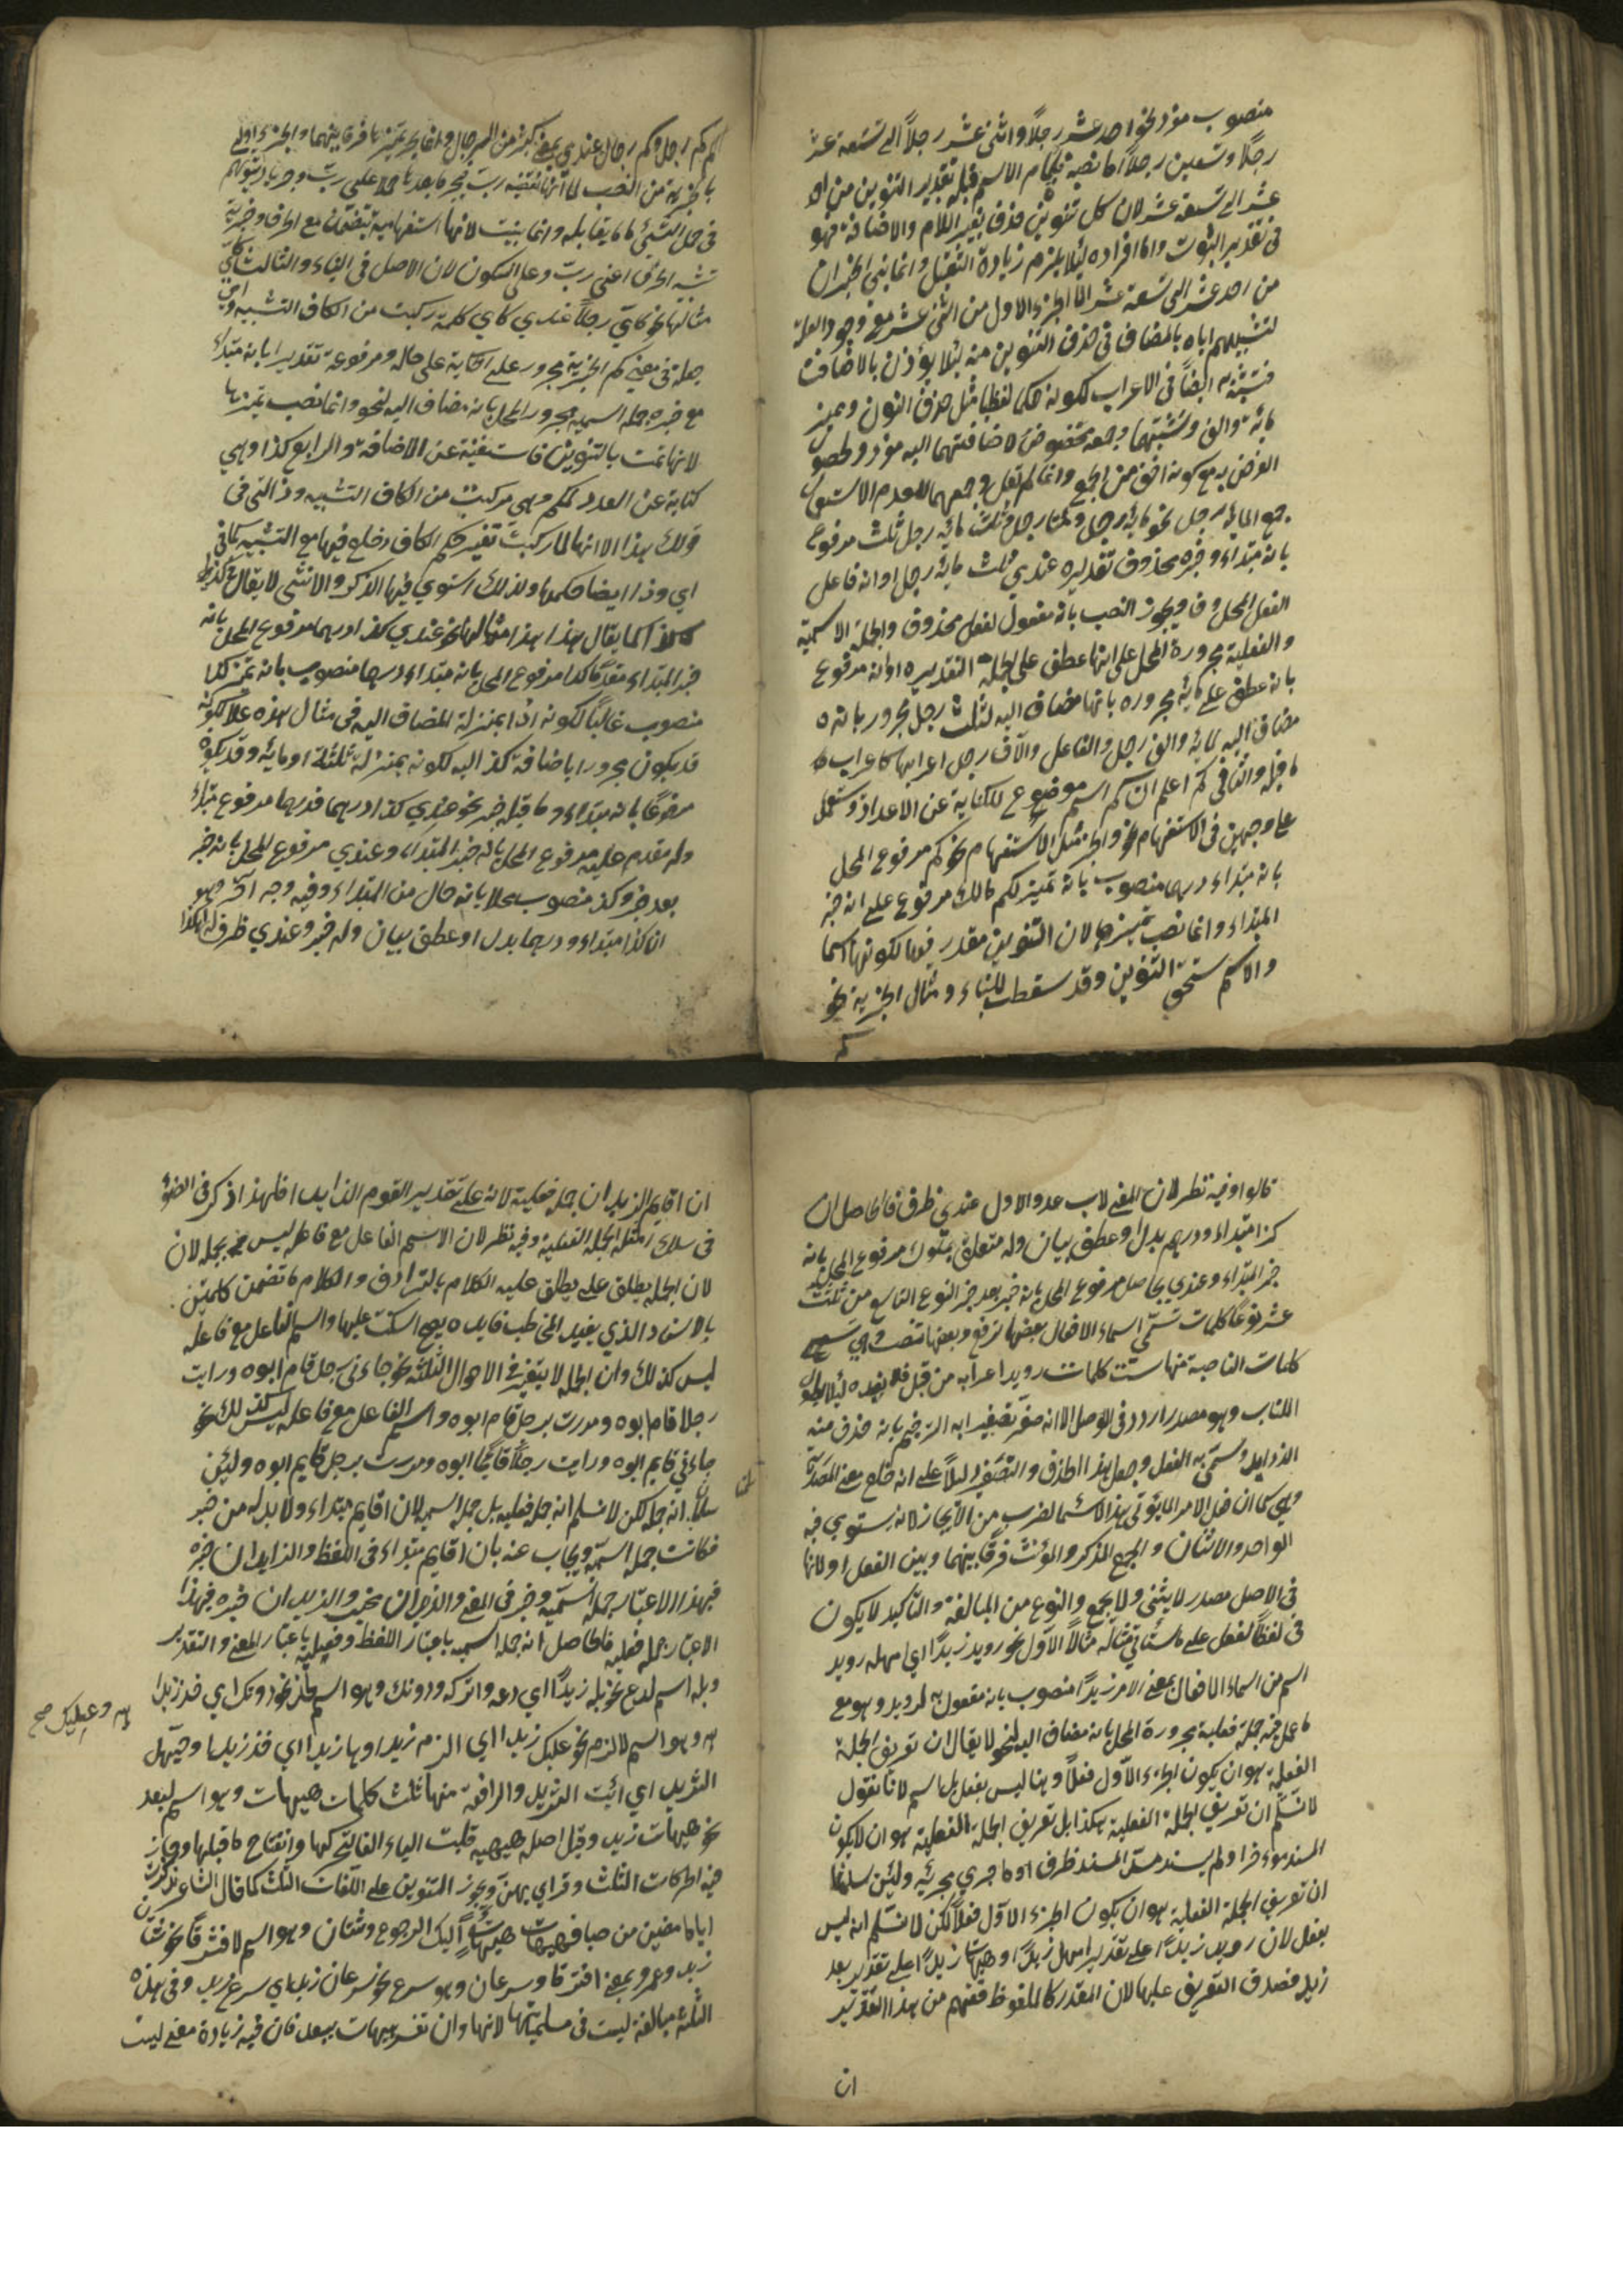 منصوب مفرد نحو احد عشر رجلاً واثنى عشر رجلاً الى تسعة عشر
رجلاً وتسعين رجلاً اما نصبه فلتمام الاسم قبله بتقدير التنوين من احد
عشر الى تسعة عشر لان كل تنوين حذف بغير اللام والاضافة فهو
فى تقدير الثبوت واما افراده لئلا يلزم زيادة الثقيل وانما بنى الجزءان
من احد عشر الى تسعة عشر الا الجزء الاول من اثنى عشر مع وجود العلة
لتشبيههم اياه بالمضاف فى حذف التنوين منه لئلا يؤذن بالاضافة
ايضاً فى الاعراب لكونه حكما لفظيا مثل حذف النون ومميز
مائة والف وتثنيتهما وجمعه مخفوض لاضافتهما اليه مفرد
الغرض به مع كونه اخف من الجمع وانما لم يقل وجمعهما لعدم الاستعمال
جمع المائة رجل نحو مائة رجل ومئتا رجل وثلث مائة رجل ثلث مرفوع
بانه مبتداء وخبره محذوف تقديره عندي ثلث مائة رجل او انه فاعل
الفعل المحذوف ويجوز النصب بانه مفعول لفعل محذوف والجملة الاسمية
والفعلية مجرورة المحل على انها عطف على الجملة التقديرية او انه مرفوع
بانه عطف على مائة مجرورة بانها مضاف اليه لثلث رجل مجرور بانه
مضاف اليه لمائة والف رجل والفا رجل وآلاف رجل اعرابها كاعراب
ما قبله والثانى كم اعلم ان كم اسم موضوع للكناية عن الاعداد وتستعمل
على وجهين فى الاستفهام والخبر مثل الاستفهام نحو كم مرفوع المحل
بانه مبتداء درهما منصوب بانه تمييز لكم مالك مرفوع على انه خبر
المبتداء وانما نصب تمييزها لان التنوين مقدر فيها لكونها اسما
والاسم يستحق التنوين وقد سقطت للبناء ومثال الخبرية نحو
كم
كم رجل وكم رجال عندي بمعنى كثير من الرجال وانما يجر تمييزها فرقا بينهما والجر اولى
بالخبرية من النصب لما انها نقيضة رب فيجر ما بعدها حملا على رب
فى حمل الشئ على ما يقابله وانما بنيت لانها استفهامية تتضمن مع الحرف وخبرية
تشبه الحرف اعنى رب وعلى السكون لان الاصل فى البناء والثالث كاي
مثالها نحو كاي رجلا عندي كاي كلمة ركبت من الكاف التشبيه واي
جعلا فى معنى كم الخبرية مجرور على الحكاية على حاله ومرفوعة تقديرا بانه مبتداء
مع خبره جملة اسمية مجرور المحل بانه مضاف اليه لنحو وانما نصب تمييزها
لانها تمت بالتنوين فاستغنيت عن الاضافة والرابع كذا وهي
كناية عن العدد لكم وهي مركبة من الكاف التشبيه وذا التى فى
قولك هذا الا انها لما ركبت تغير حكم الكاف وخلع فيها مع التشبيه كما فى
اي وذا ايضا حكمها ولذلك استوي فيها الذكر والانثى لا يقال
كما يقال هذا هذا مثالها نحو عندي كذا درهما مرفوع المحل بانه
خبر المبتداء مقدما كذا مرفوع المحل بانه مبتداء ودرهما منصوب بانه تمييز كذا
منصوب غالبا لكونه ذا بمنزلة المضاف اليه فى مثال هذه
قد يكون مجرورا باضافة كذا اليه لكونه بمنزلة ثلثة او مائة وقد يكون
مرفوعا بانه مبتداء وما قبله خبر نحو عندي كذا درهما فدرهما مرفوع مبتداء
وله مقدم عليه مرفوع المحل بانه خبر المبتداء وعندي مرفوع المحل بانه خبر
بعد خبر وكذا منصوب محلا بانه حال من المبتداء وفيه وجه آخر وهو
ان كذا مبتداء ودرهما بدل او عطف بيان وله خبر وعندي ظرف له هكذا
قالوا وفيه نظر لان المعنى لا يساعد والاول عندي ظرف فالحاصل ان
كذا مبتداء ودرهم بدل او عطف بيان وله متعلق مرفوع المحل بانه
خبر المبتداء وعندي حاصل مرفوع المحل بانه خبر بعد خبر النوع التاسع من ثلثة
عشر نوعا كلمات تسمى اسماء الافعال بعضها ترفع وبعضها تنصب
كلمات الناصبة منها ست كلمات رويد اعرابه من قبل
الكتاب وهو مصدر ارود فى الاصل الا انه صغر تصغير الترخيم بانه حذف منه
الزوايد وسمى به الفعل وجعل هذا الحذف والتصغير دليلا على انه خلع معنى المصدرية
كما ان فعل الامر انما يؤتى بهذا الاسم لضرب من الايجاز لانه يستوي فيه
الواحد والاثنان والجمع المذكر والمؤنث فرقا بينهما وبين الفعل او لانها
فى الاصل مصدر لا يثنى ولا يجمع والنوع من المبالغة والتأكيد لا يكون
فى لفظ الفعل على ما سيأتي مثاله مثال الاول نحو رويد زيدا اي امهله رويد
اسم من اسماء الافعال بمعنى الامر زيدا منصوب بانه مفعول به لرويد وهو مع
ما عمل فيه جملة فعلية مجرورة المحل بانه مضاف اليه لنحو لا يقال ان تعريف الجملة
الفعلية هو ان يكون الجزء الاول فعلا وهنا ليس بفعل بل اسم لانا نقول
لا نسلم ان تعريف الجملة الفعلية هكذا بل تعريف الجملة الفعلية هو ان لا يكون
المسند مؤخرا ولم يسند المسند ظرف او ما جري مجريه ولئن سلمنا
ان تعريف الجملة الفعلية هو ان يكون الجزء الاول فعلا لكن لا نسلم انه ليس
بفعل لان رويد زيدا على تقدير امهل زيدا وهيهات زيد على تقدير بعد
زيد فصدق التعريف عليها لان المقدر كالملفوظ ففهم من هذا التقدير
ان
ان اقايم الزيدان جملة فعلية لانه على تقدير ايقوم الزيدان فلهذا ذكر فى الضوء
فى سلك امثلة الجملة الفعلية وفيه نظر لان الاسم الفاعل مع فاعله ليس بجملة لان
لان الجملة يطلق على ما يطلق عليه الكلام بالترادف والكلام ما تضمن كلمتين
بالاسناد الذي يفيد المخاطب فايدة يصح السكت عليها واسم الفاعل مع فاعله
ليس كذلك وان الجملة لا يتغير فى الاحوال الثلثة نحو جاءنى رجل قام ابوه ورايت
رجلا قام ابوه ومررت برجل قام ابوه واسم الفاعل مع فاعله ليس كذلك نحو
جاءني قايم ابوه ورايت رجلا قايما ابوه ومررت برجل قايم ابوه ولئن
سلمنا انه جملة لكن لا نسلم انه جملة فعلية بل جملة اسمية لان اقايم مبتداء ولا بد له من خبر
فكانت جملة اسمية ويجاب عنه بان اقايم مبتداء فى اللفظ والزايدان خبره
فبهذا الاعتبار جملة اسمية وخبر فى المعنى والزيدان مخبر والزيدان خبره فبهذا
الاعتبار جملة فعلية فالحاصل انه جملة اسمية باعتبار اللفظ وفعلية باعتبار المعنى والتقدير
وبله اسم لدع نحو بله زيدا اي دعه واتركه ودونك وهو اسم لخذ نحو دونك اي خذ زيدا
وهو اسم لالزم نحو عليك زيدا اي الزم زيدا وها زيدا اي خذ زيدا وحيهل
الثريد اي ائت الثريد والرافعة منها ثلث كلمات هيهات وهو اسم لبعد
نحو هيهات زيد وقيل اصله هيهية قلبت الياء الفا لتحركها وانفتاح ما قبلها وجاز
فيه الحركات الثلث وقراي بهن ويجوز التنوين على اللغات الثلث كما قال الشاعر تذكرت
اياما مضين من صبا فهيهات هيهات اليك الرجوع وشتان وهو اسم لافترق نحو شتان
زيد وعمرو بمعنى افترقا وسرعان وهو سرع نحو سرعان زيد اي سرع زيد وفى هذه
الثلثة مبالغة ليست فى مسمياتها لانها وان تفسر هيهات ببعد فان فيه زيادة معنى ليست
وعليك صح